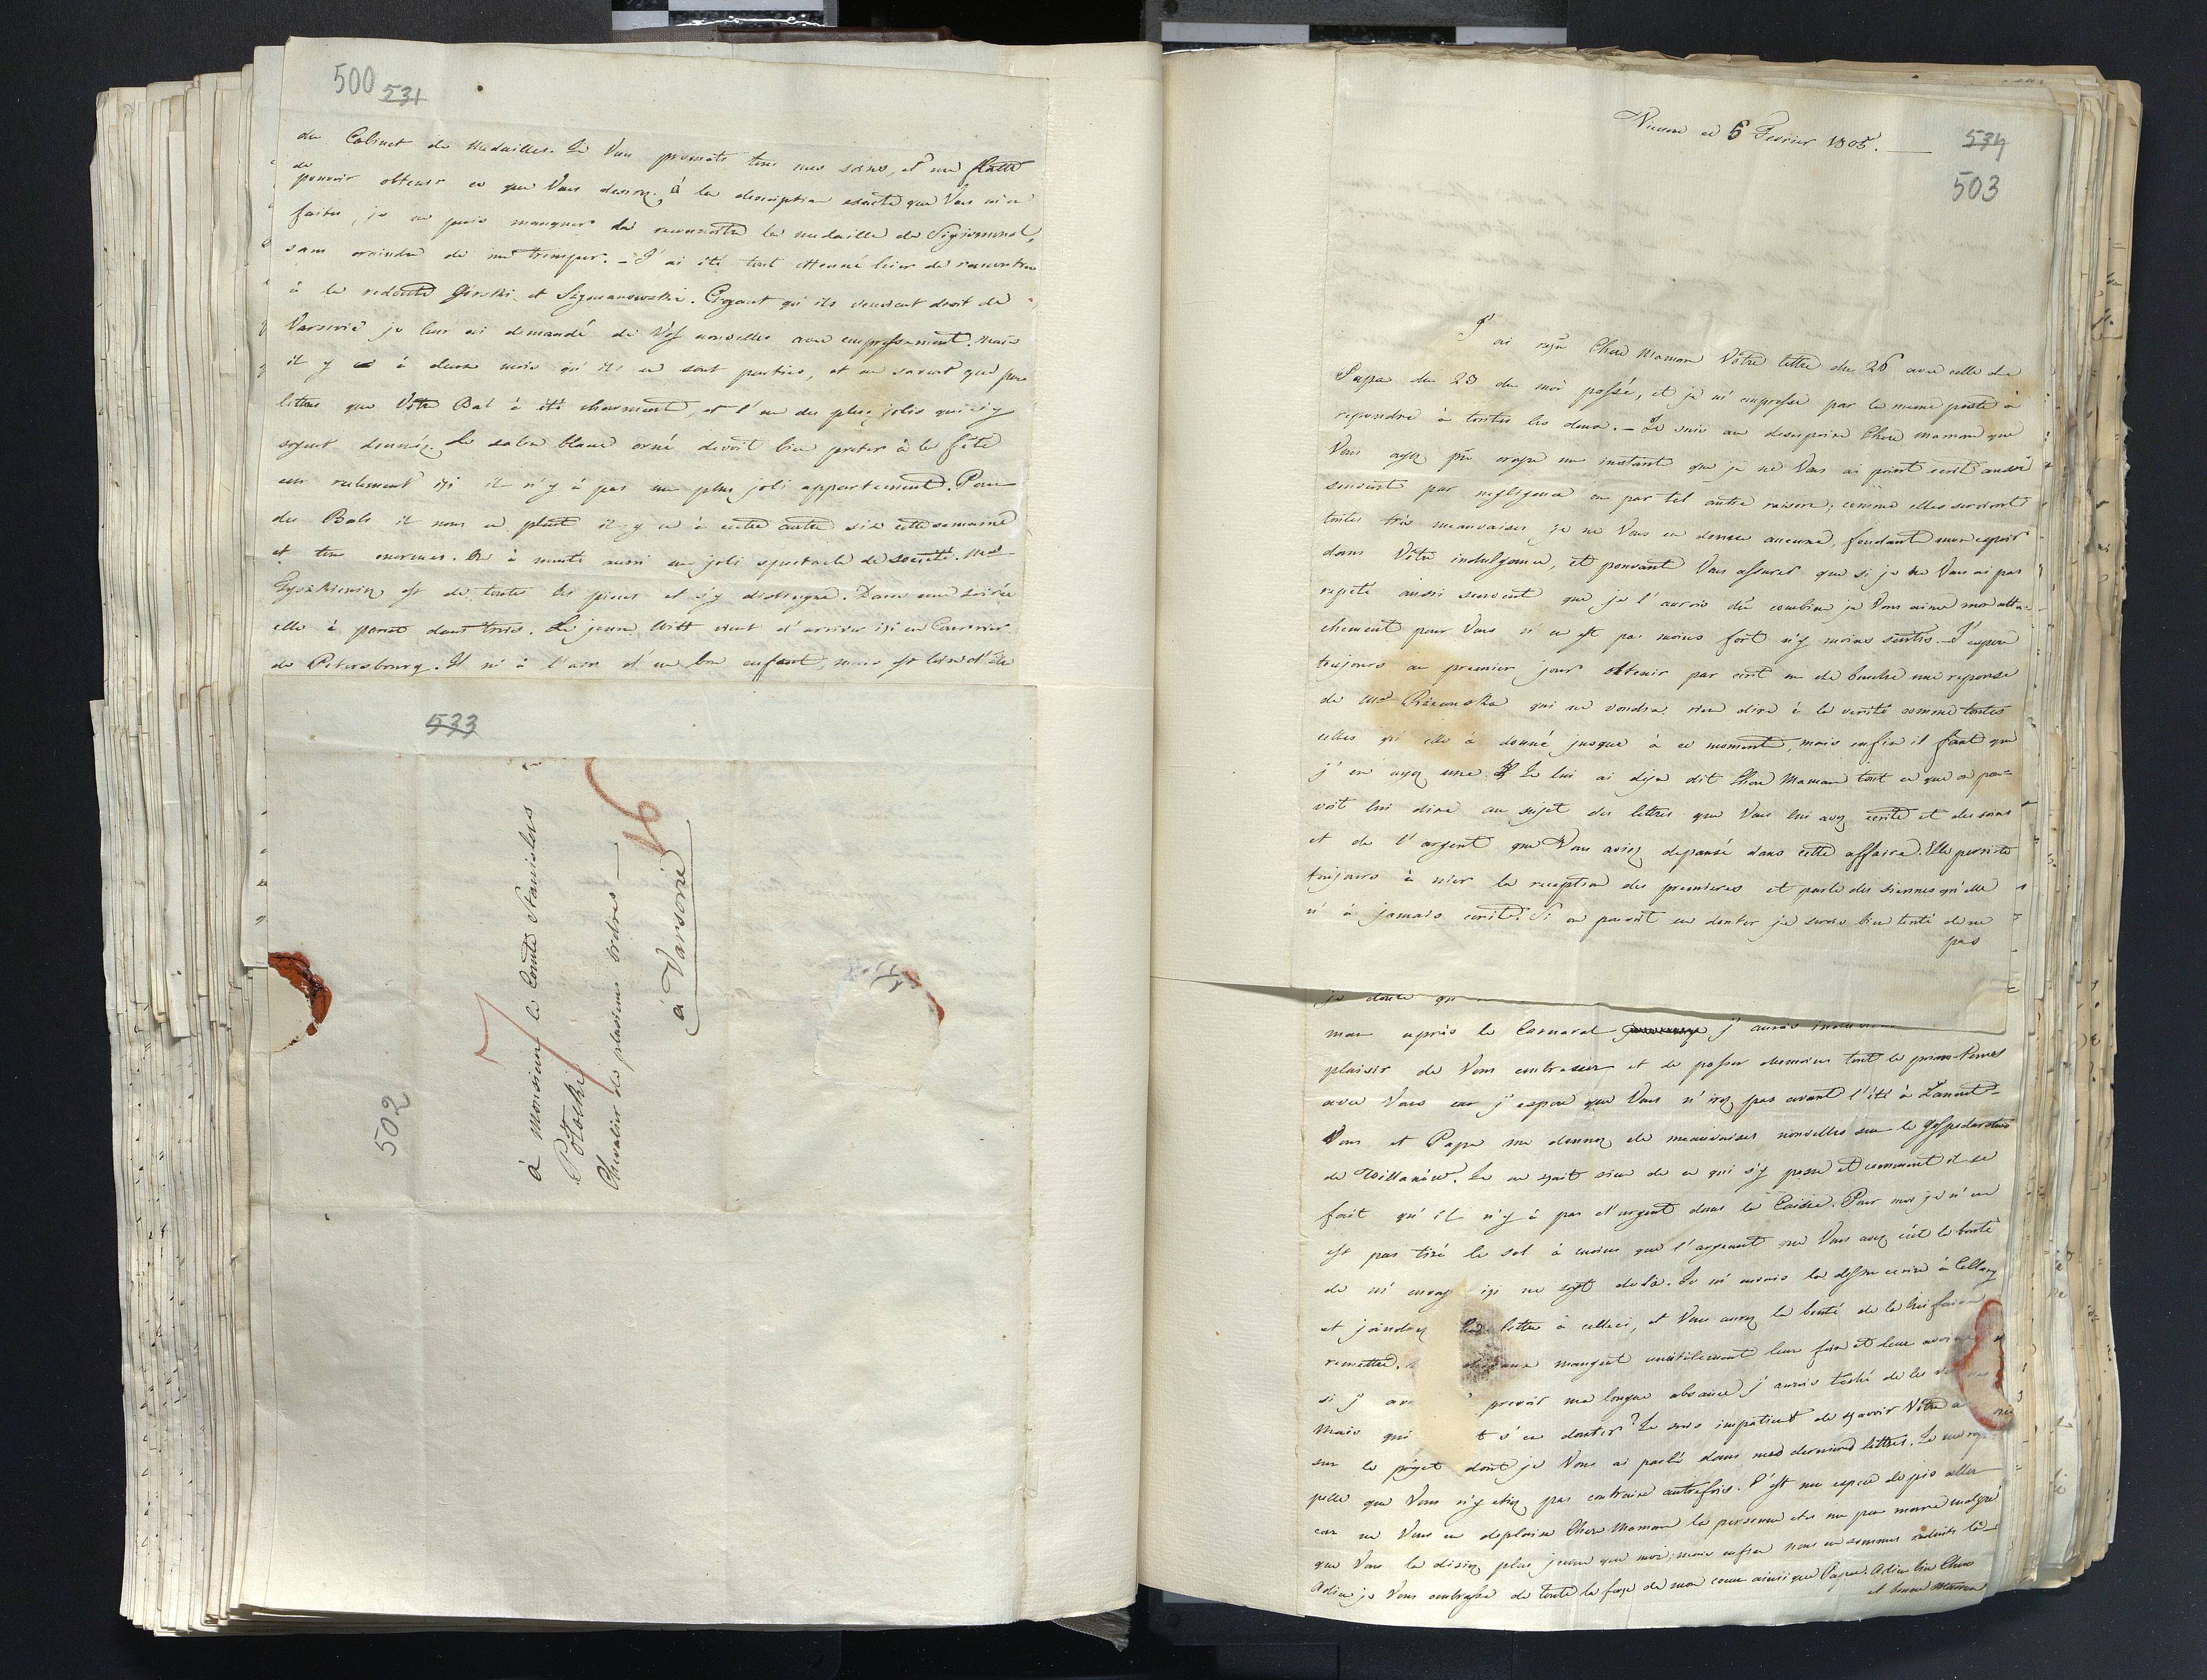 500 531
du Cabinet de Medailles. Je Vous promets tous mes soins, et me flatte de
pouvoir obtenir ce que Vous desirez. à la description exacte que Vous m'en
faites, je ne puis manquer de reconnoitre la medaille de Sigismond,
sans craindre de me tromper. – J'ai été tout etonné hier de rencontrer
à la redoute Girski et Sigmanowski. Croyant qu'ils venoient droit de
Varsovie je leur ai demandé de Vos nouvelles avec empressement. Mais
il y a à deux mois qu'ils en sont parties, et ne savent que par
lettres que Votre Bal à été charmant, et l'un des plus jolis qui s'y
soyent donnéz. Le salon blanc orné devoit bien preter à la fête
car reelement ici il n'y à pas un plus joli appartement. Pour
des Bals il nous en pleut il y en à entre autre six cette semaine
et tous enormes. On à monté aussi un joli spectacle de société. Mad
Tyszkiewicz est de toutes les pieces et s'y distingue. Dans une soirée
elle à parut dans trois. Le jeune Witt vient d'arriver ici en Courrier
de Petersbourg. Il m'à l'air d'un bon enfant, mais est bien d'être
533
à Monsieur le Comte Stanislas
Potocki
Chevalier de plusieurs ordres —
à Varsovie
16
7
502
Vienne ce 6 Fevrier 1805. —
534
503
J'ai reçu Chere Maman Votre lettre du 26 avec celle de
Papa du 23 du moi passé, et je m'empresse par la meme poste à
repondre à toutes les deux. – Je suis au desespoire Chere Maman que
Vous ayez pu croyre un instant que je ne Vous ai point ecrit aussi
souvent par negligence ou par tel autre raison; comme elles seroient
toutes très mauvaises je ne Vous en donne aucune, fondant mon espoir
dans Votre indulgence, et pouvant Vous assurer que si je ne Vous ai pas
repeté aussi souvent que je l'aurois dû combien je Vous aime mon atta-
chement pour Vous n'en est pas moins fort n'y moins sentis. – J'espere
toujours au premier jour obtenir par ecrit ou de bouche une reponse
de Md Rzewuska qui ne voudra rien dire à la verité comme toutes
celles qu'elle à donné jusque à ce moment, mais enfin il faut que
j'en ayez une. Je lui ai deja dit Chere Maman tout ce que on pou-
voit lui dire au sujet des lettres que Vous lui avez ecrite et des soins
et de l'argent que Vous aviez depensé dans cette affaire. Elle persiste
toujours à nier la reception des premieres et parle des siennes qu'elle
n'à jamais ecrite. Si on pouvoit en douter je serois bien tenté de ne
pas
je doute qu
man après le Carnaval j'aurois
plaisir de Vous embrasser et de passer dumoins tout le prin-tems
avec Vous car j'espere que Vous n'irez pas avant l'été à Lancut –
Vous et Papa me donnez de mauvaises nouvelles sur le Gospodarstwo
de Willanów. Je ne sait rien de ce qui s'y passe et comment il se
fait qu'il n'y à pas d'argent dans la Caisse. Pour moi je n'en
est pas tiré le sol à moins que l'argeant que Vous avez eut la bonté
de m'envoy ici ne soit de là. Je m'envais la dessu ecrire à
et joindrez lettre à celleci, et Vous aurez la bonté de la lui faire
remettre. mangent inutilement leur foin et leur avoine
si j'av prevoir ma longue absance j'aurois taché de les
Mais qui t s'en douter? Je suis impatient de sçavoir Votre a
sur le projet dont je Vous ai parlé dans mes dernieres lettres. Je me rap-
pelle que Vous n'y etiez pas contraire autrefois. C'est une espece de pis aller
car ne Vous en deplaise Chere Maman la personne et un peu malgré
que Vous la disiez plus jeune que moi; mais enfin nous en sommes reduits là –
Adieu je Vous embrasse de toute la force de mon coeur ainsi que Papa. Adieu bien Chere
et bonne Maman